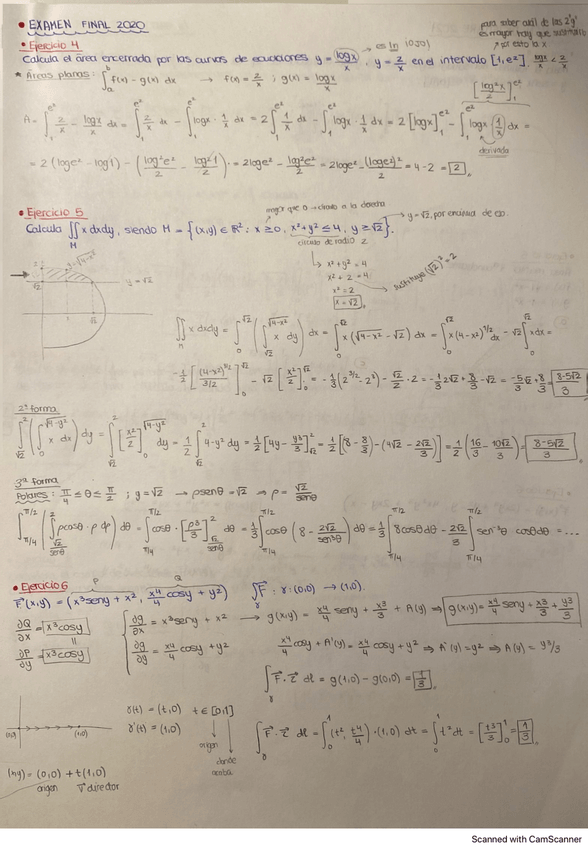 • EXAMEN FINAL 2020
• Ejercicio 4
para saber cuál de las 2 "y"
es mayor hay que sustituir
por esto la x
→ es ln (ojo)
Calcula el área encerrada por las curvas de ecuaciones y = logx/x, y = 2/x en el intervalo [1, e²]. logx/x < 2/x
* Áreas planas: ∫_a^b f(x) - g(x) dx → f(x) = 2/x ; g(x) = logx/x
[log²x/2]_1^{e²}
A = ∫_1^{e²} 2/x - logx/x dx = ∫_1^{e²} 2/x dx - ∫_1^{e²} logx · 1/x dx = 2 ∫_1^{e²} 1/x dx - ∫_1^{e²} logx · 1/x dx = 2 [logx]_1^{e²} - ∫_1^{e²} logx (1/x) dx =
derivada
= 2 (loge² - log1) - (log²e²/2 - log²1/2) = 2loge² - log²e²/2 = 2loge² - (loge²)²/2 = 4 - 2 = 2
• Ejercicio 5
mayor que 0 → círculo a la derecha
Calcula ∬_H x dxdy, siendo H = {(x,y) ∈ ℝ² : x ≥ 0, x² + y² ≤ 4, y ≥ √2}.
→ y = √2, por encima de eso.
círculo de radio 2
y = √4-x²
√2
y = √2
x² + y² = 4
x² + 2 = 4
x² = 2
x = √2
sustituyo (√2)² = 2
∬_H x dxdy = ∫_0^{√2} (∫_{√2}^{√4-x²} x dy) dx = ∫_0^{√2} x (√4-x² - √2) dx = ∫_0^{√2} x (4-x²)^{1/2} dx - √2 ∫_0^{√2} x dx =
-1/2 [(4-x²)^{3/2}/3/2]_0^{√2} - √2 [x²/2]_0^{√2} = -1/3 (2^{3/2} - 2³) - √2/2 · 2 = -1/3 2√2 + 8/3 - √2 = -5√2/3 + 8/3 = 8-5√2/3
2ª forma
∫_{√2}^2 (∫_0^{√4-y²} x dx) dy = ∫_{√2}^2 [x²/2]_0^{√4-y²} dy = 1/2 ∫_{√2}^2 4-y² dy = 1/2 [4y - y³/3]_{√2}^2 = 1/2 [(8 - 8/3) - (4√2 - 2√2/3)] = 1/2 (16/3 - 10√2/3) = 8-5√2/3
3ª forma
Polares: π/4 ≤ θ ≤ π/2 ; y = √2 → ρsenθ = √2 → ρ = √2/senθ
∫_{π/4}^{π/2} (∫_{√2/senθ}^2 ρcosθ · ρ dρ) dθ = ∫_{π/4}^{π/2} cosθ · [ρ³/3]_{√2/senθ}^2 dθ = 1/3 ∫_{π/4}^{π/2} cosθ (8 - 2√2/sen³θ) dθ = 1/3 ∫_{π/4}^{π/2} 8cosθ dθ - 2√2/3 ∫_{π/4}^{π/2} sen⁻³θ cosθ dθ = ...
• Ejercicio 6
P Q
F(x,y) = (x³seny + x², x⁴/4 cosy + y²) ∫_γ F : γ: (0,0) → (1,0).
∂Q/∂x = x³cosy
=
∂P/∂y = x³cosy
∂g/∂x = x³seny + x² → g(x,y) = x⁴/4 seny + x³/3 + A(y) ⇒ g(x,y) = x⁴/4 seny + x³/3 + y³/3
∂g/∂y = x⁴/4 cosy + y²
x⁴/4 cosy + A'(y) = x⁴/4 cosy + y² ⇒ A'(y) = y² ⇒ A(y) = y³/3
∫ F · τ dl = g(1,0) - g(0,0) = 1/3
(0,0) (1,0)
γ(t) = (t,0) t ∈ [0,1]
γ'(t) = (1,0)
origen
donde
acaba
∫_γ F · τ dl = ∫_0^1 (t², t⁴/4) · (1,0) dt = ∫_0^1 t² dt = [t³/3]_0^1 = 1/3
(x,y) = (0,0) + t(1,0)
origen v director
Scanned with CamScanner